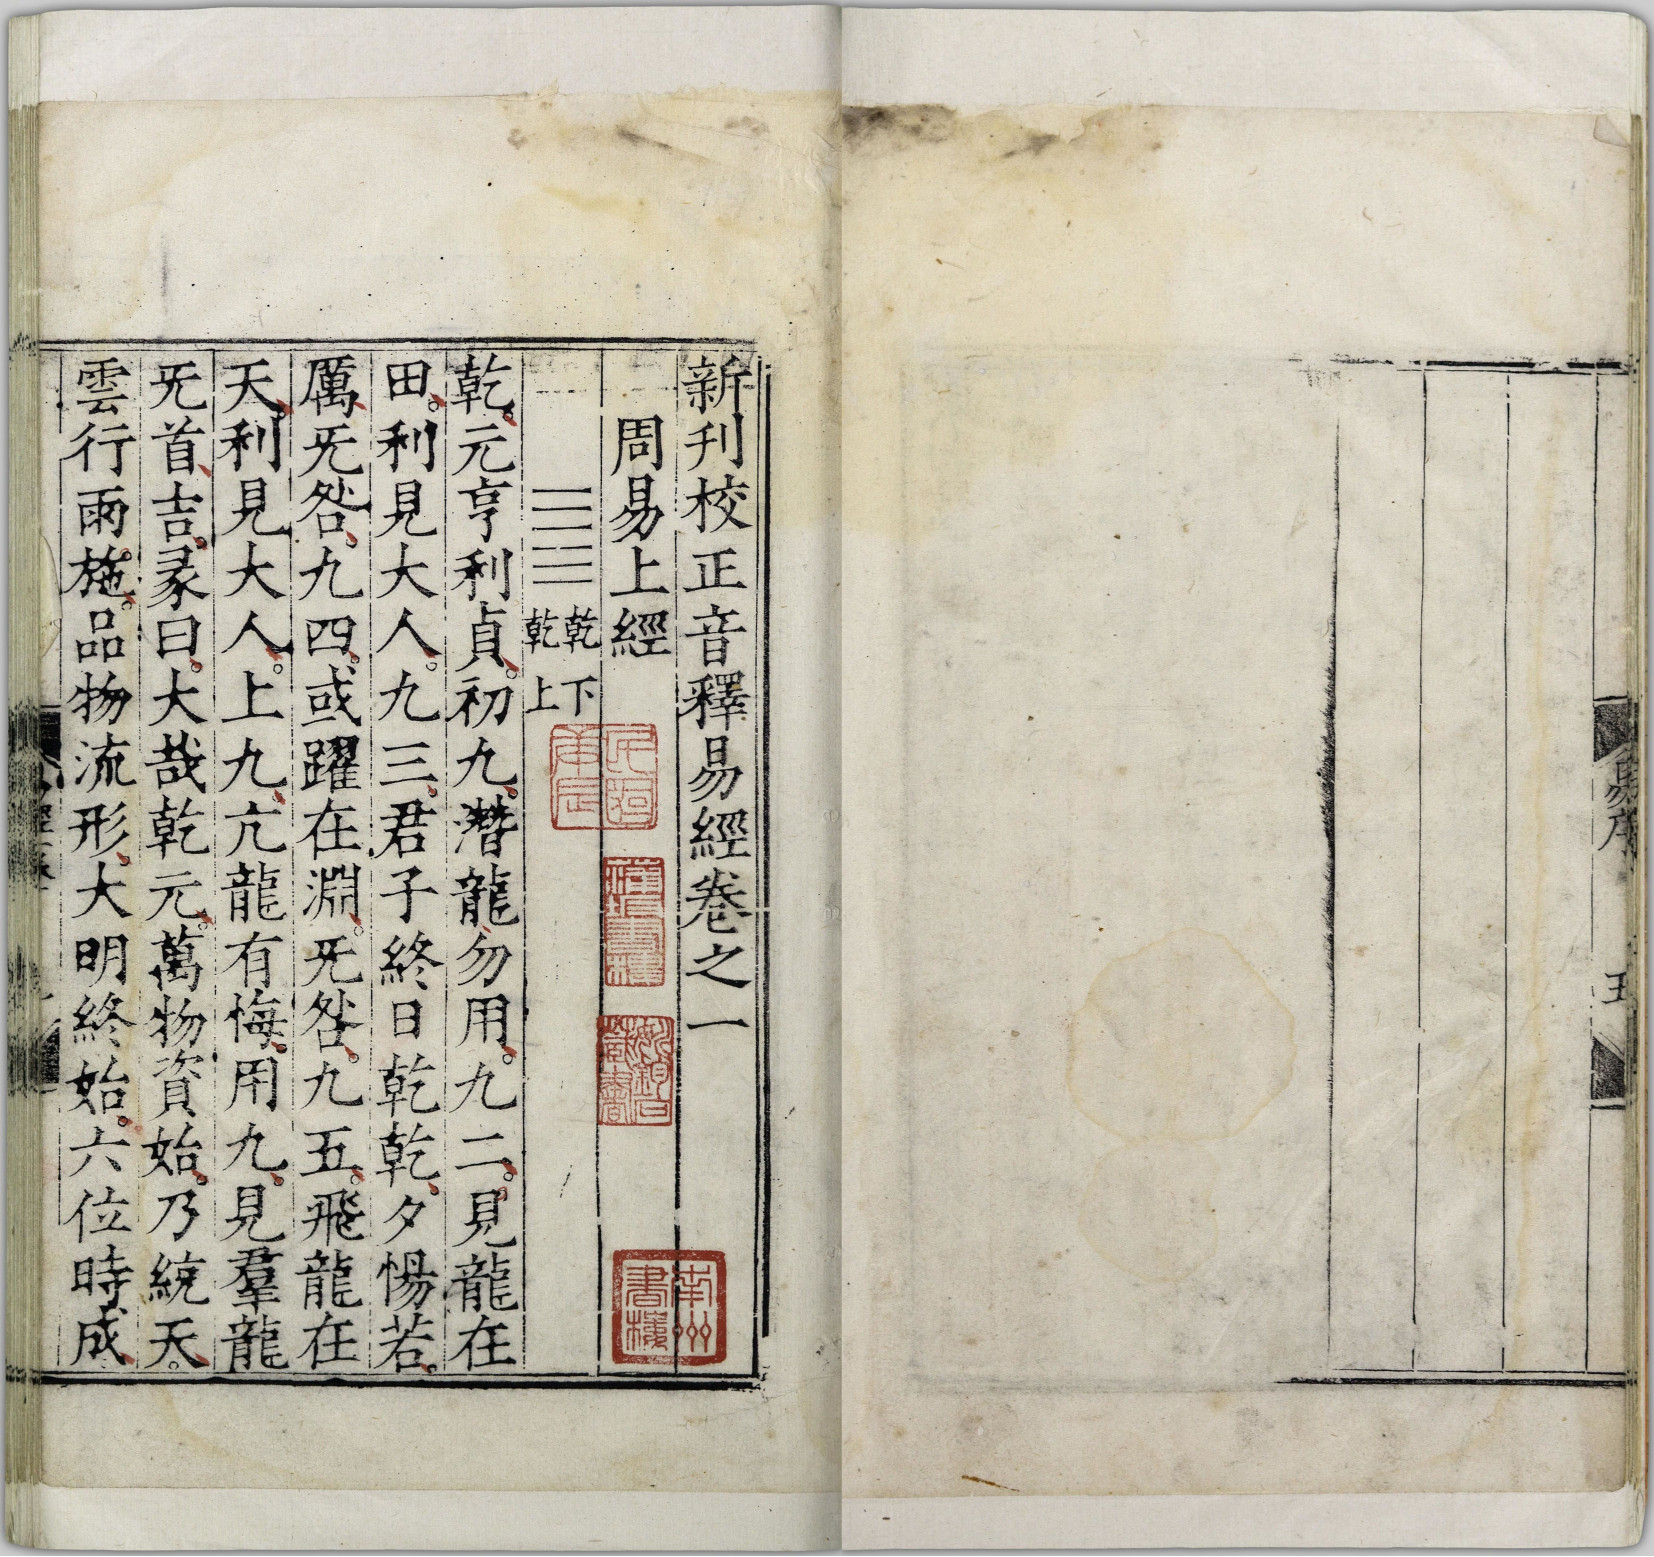 易序
五
新刊校正音釋易經卷之一
周易上經
乾下
乾上
乾。元亨利貞。初九。潛龍勿用。九二。見龍在
田。利見大人。九三。君子終日乾乾。夕惕若。
厲无咎。九四。或躍在淵。无咎。九五。飛龍在
天。利見大人。上九。亢龍有悔。用九。見羣龍
无首。吉。彖曰。大哉乾元。萬物資始。乃統天。
雲行雨施。品物流形。大明終始。六位時成
南州書樓